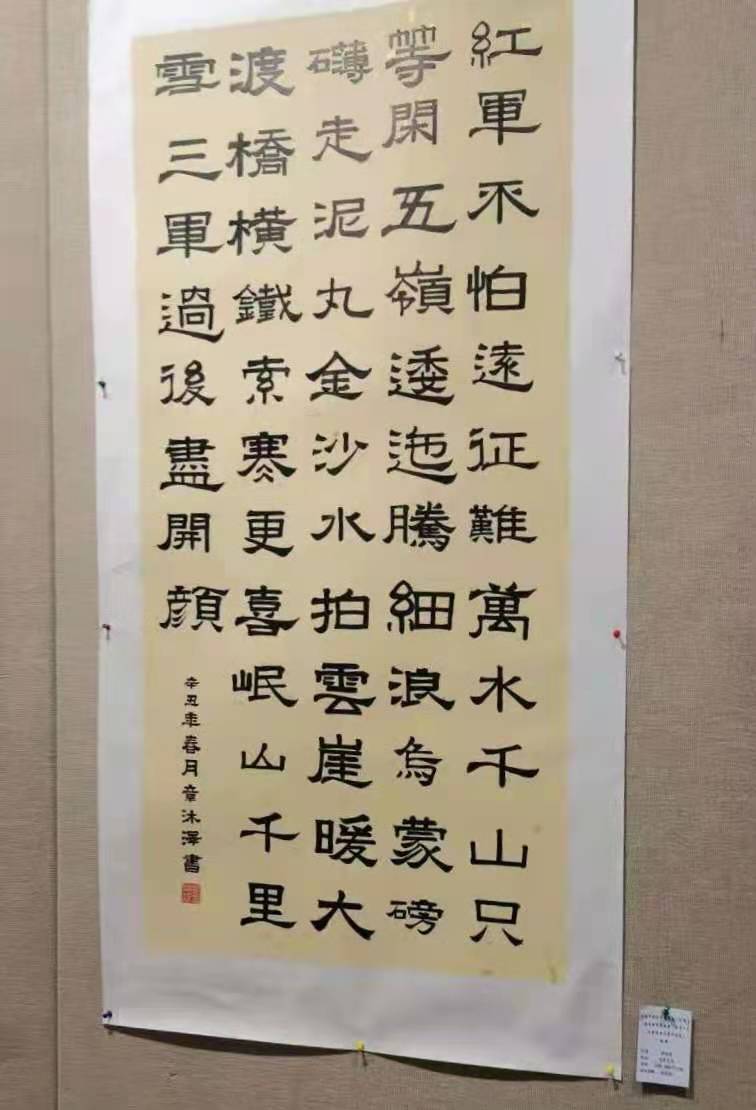 紅軍不怕遠征難萬水千山只
等閑五嶺逶迤騰細浪烏蒙磅
礴走泥丸金沙水拍雲崖暖大
渡橋橫鐵索寒更喜岷山千里
雪三軍過後盡開顏
辛丑年春月章沐澤書